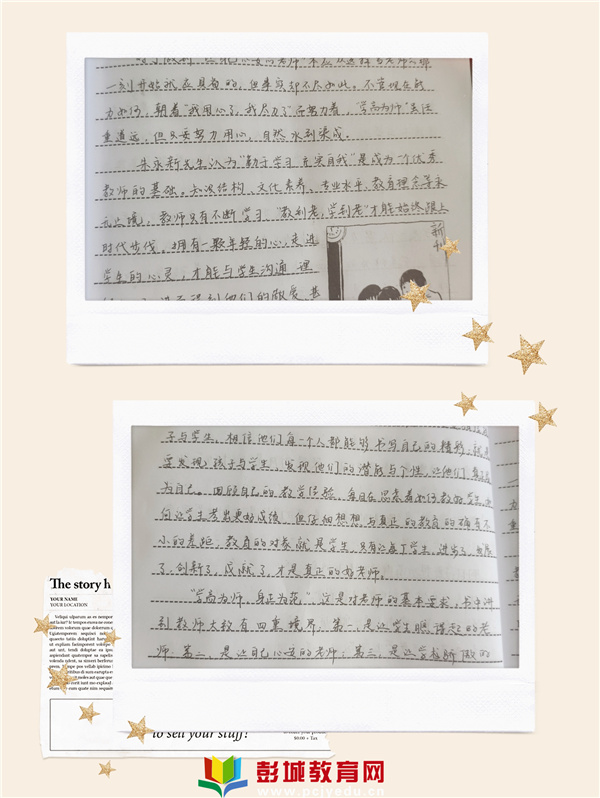 一刻开始就应具备的，但事实却不尽如此。不管现在能
力如何，朝着“我用心了，我尽力了”而努力着，“学高为师”任
重道远，但只要努力用心，自然水到渠成。
朱永新先生认为“勤于学习 充实自我”是成为一个优秀
教师的基础。知识结构、文化素养、专业水平、教育理念等来
无止境，教师只有不断学习，“教到老，学到老”才能始终跟上
时代步伐。拥有一颗年轻的心，走进
学生的心灵，才能与学生沟通 理
新
子与学生，相信他们每一个人都能够书写自己的精彩，就
要发现孩子与学生，发现他们的潜能与个性，让他们
为自己。回顾自己的教学经验，每日在思索着如何教好学生，如
何让学生考出更好成绩，但仔细想想与真正的教育的确有不
小的差距，教育的对象就是学生，只有让每个学生，进步了，发展
了，创新了，成就了，才是真正的好老师。
“学高为师，身正为范”这是对老师的基本要求，书中讲
到教师大致有四重境界，第一，是让学生瞧得起的老
师；第二，是让自己心安的老师；第三，是让学校骄傲的
The story h
YOUR NAME
YOUR LOCATION
to sell your stuff!
$0.00 + Tax
彭城教育网
www.pcjyedu.cn